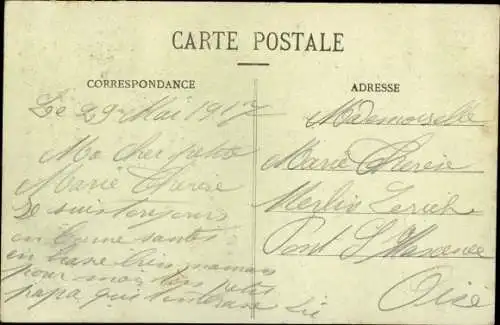 CARTE POSTALE
CORRESPONDANCE
ADRESSE
Le 29 Mai 1917
Ma cher petite
Marie Therese
Je suis toujours
en bonne santé
bien maman
pour moi ton petit
papa qui
Mademoiselle
Marie Therese
Merlin
Pont Ste Maxence
Oise